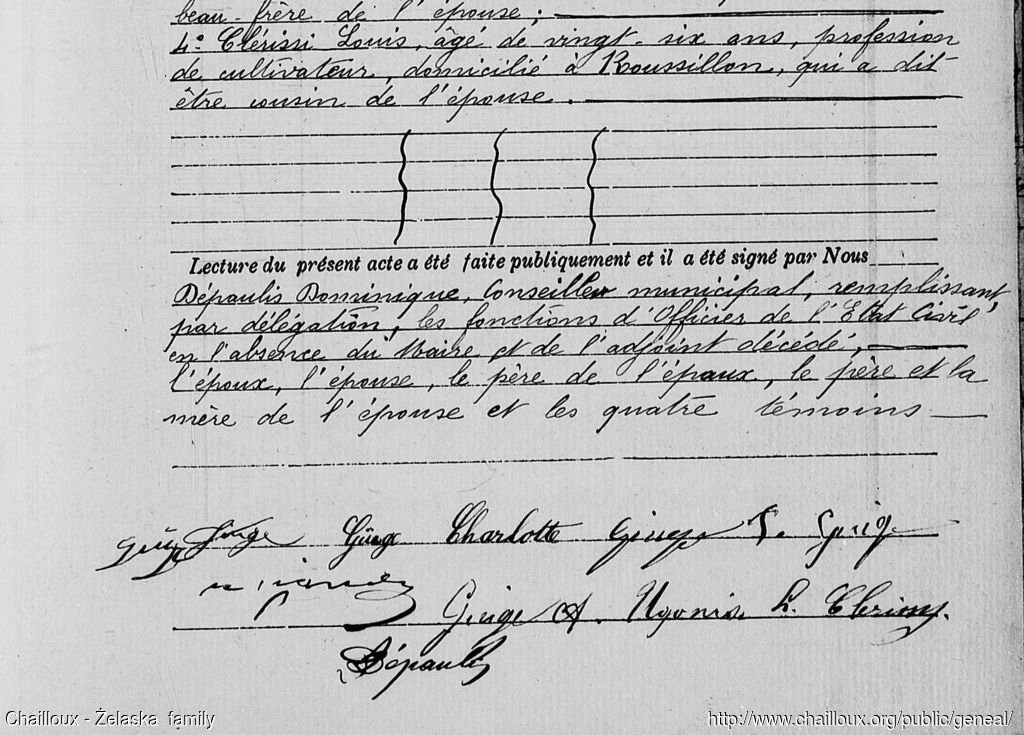 beau-frère de l'épouse ;
4° Clérissi Louis, âgé de vingt-six ans, profession
de cultivateur, domicilié à Roussillon, qui a dit
être cousin de l'épouse.
Lecture du présent acte a été faite publiquement et il a été signé par Nous
Dépaulis Dominique, Conseiller municipal, remplissant,
par délégation, les fonctions d'Officier de l'Etat Civil
en l'absence du Maire et de l'adjoint décédé,
l'époux, l'épouse, le père de l'épaux, le père et la
mère de l'épouse et les quatre témoins
Charlotte
A. Ugonis L.
Dépaulis
Chailloux - Želaska family
http://www.chailloux.org/public/geneal/